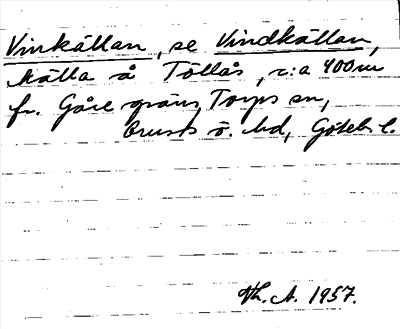 Vinkällan, se Vindkällan,
källa å Töllås, c:a 400 m
fr. Gåre gräns, Torps sn,
Orusts ö. hd, Götebs l.
Th. A. 1957.